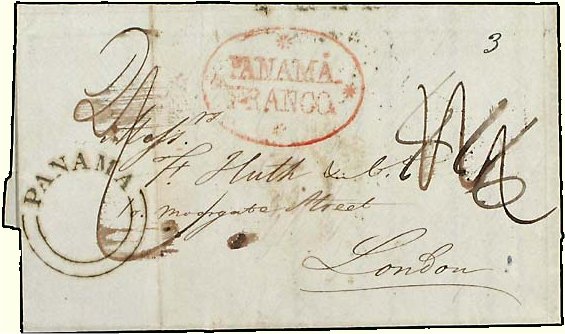 3
PANAMÁ
FRANCO
PANAMA
Mess.rs
F. Huth & Co.
10 moorgate Street
London